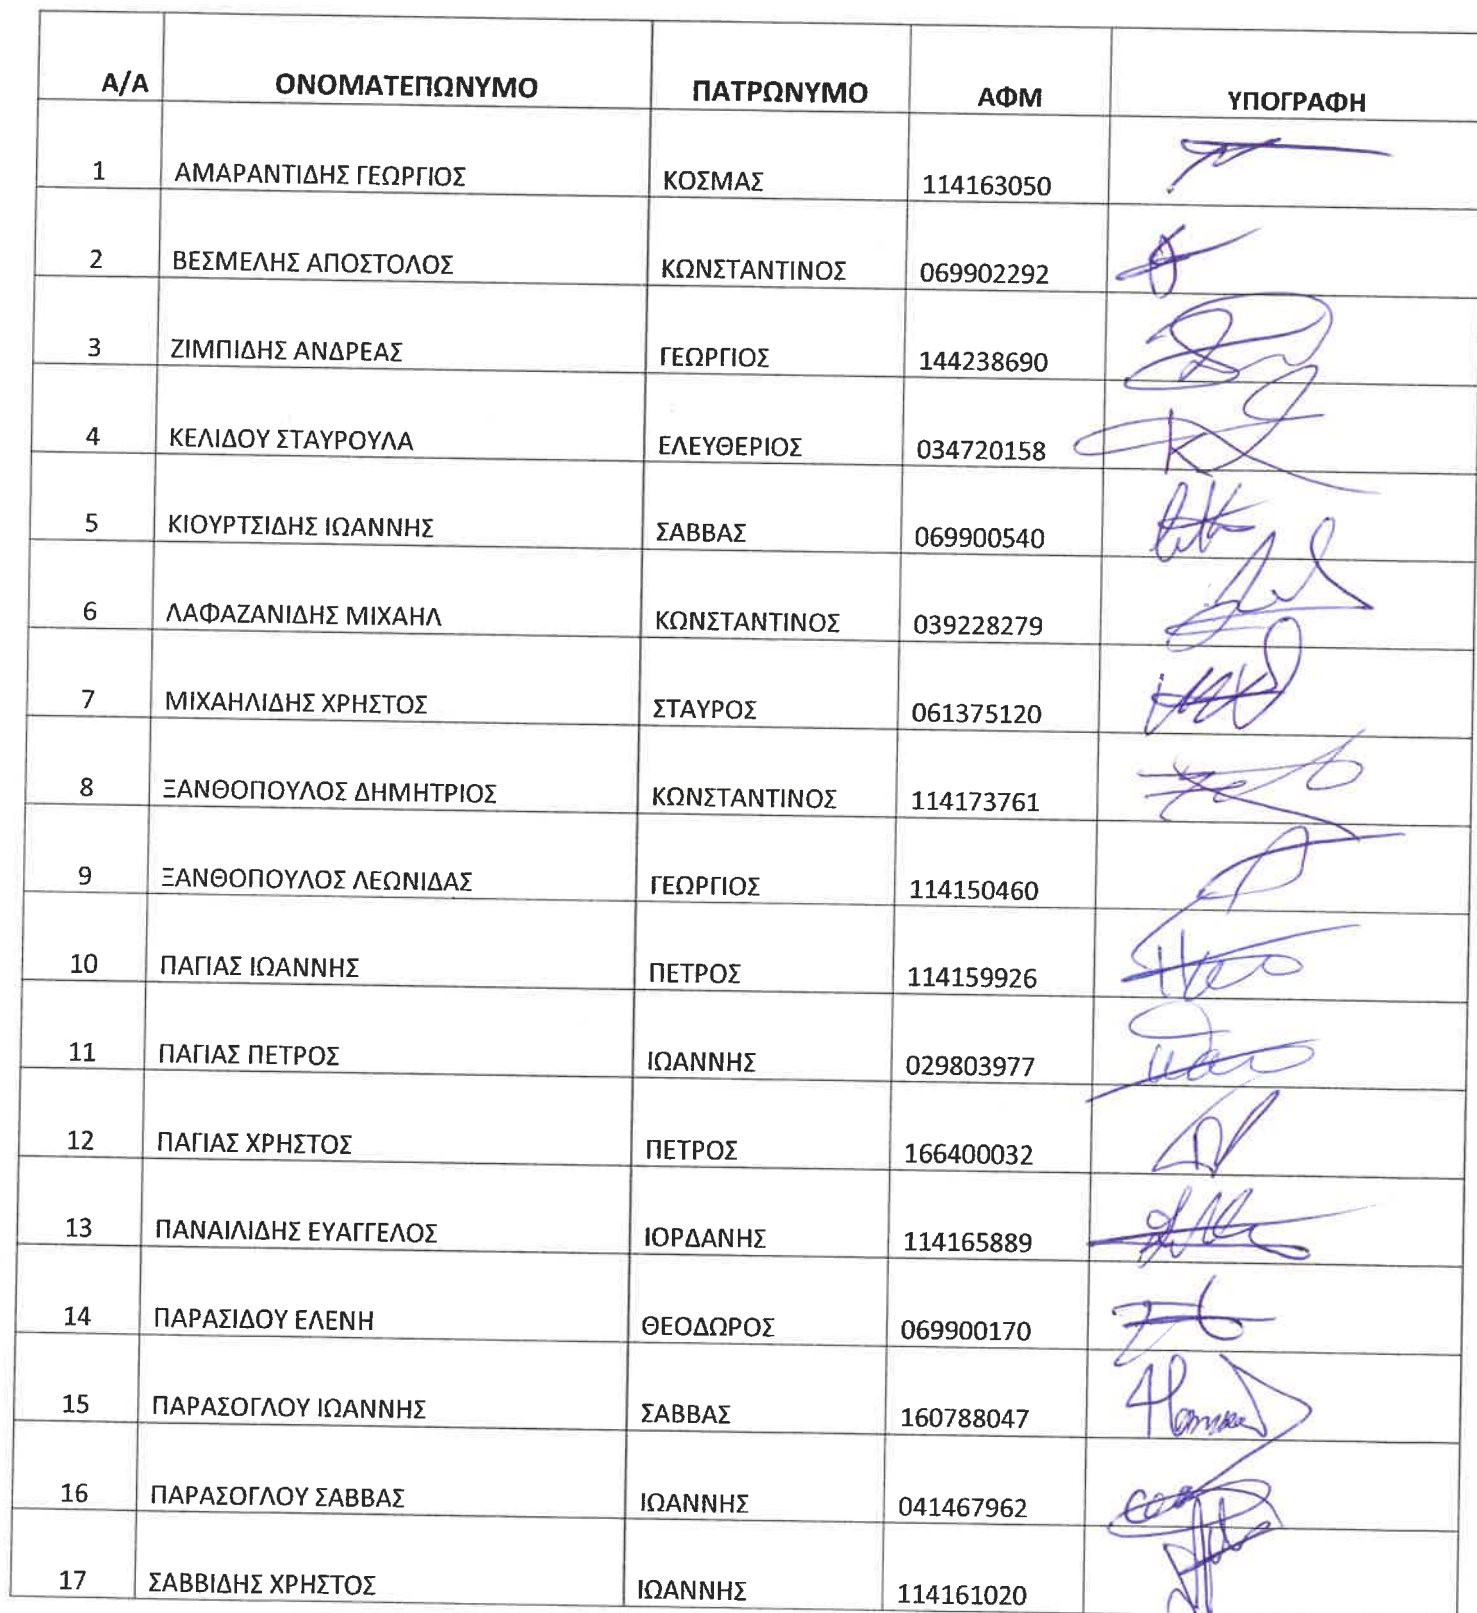 Α/Α ΟΝΟΜΑΤΕΠΩΝΥΜΟ ΠΑΤΡΩΝΥΜΟ ΑΦΜ ΥΠΟΓΡΑΦΗ
1 ΑΜΑΡΑΝΤΙΔΗΣ ΓΕΩΡΓΙΟΣ ΚΟΣΜΑΣ 114163050
2 ΒΕΣΜΕΛΗΣ ΑΠΟΣΤΟΛΟΣ ΚΩΝΣΤΑΝΤΙΝΟΣ 069902292
3 ΖΙΜΠΙΔΗΣ ΑΝΔΡΕΑΣ ΓΕΩΡΓΙΟΣ 144238690
4 ΚΕΛΙΔΟΥ ΣΤΑΥΡΟΥΛΑ ΕΛΕΥΘΕΡΙΟΣ 034720158
5 ΚΙΟΥΡΤΣΙΔΗΣ ΙΩΑΝΝΗΣ ΣΑΒΒΑΣ 069900540
6 ΛΑΦΑΖΑΝΙΔΗΣ ΜΙΧΑΗΛ ΚΩΝΣΤΑΝΤΙΝΟΣ 039228279
7 ΜΙΧΑΗΛΙΔΗΣ ΧΡΗΣΤΟΣ ΣΤΑΥΡΟΣ 061375120
8 ΞΑΝΘΟΠΟΥΛΟΣ ΔΗΜΗΤΡΙΟΣ ΚΩΝΣΤΑΝΤΙΝΟΣ 114173761
9 ΞΑΝΘΟΠΟΥΛΟΣ ΛΕΩΝΙΔΑΣ ΓΕΩΡΓΙΟΣ 114150460
10 ΠΑΓΙΑΣ ΙΩΑΝΝΗΣ ΠΕΤΡΟΣ 114159926
11 ΠΑΓΙΑΣ ΠΕΤΡΟΣ ΙΩΑΝΝΗΣ 029803977
12 ΠΑΓΙΑΣ ΧΡΗΣΤΟΣ ΠΕΤΡΟΣ 166400032
13 ΠΑΝΑΙΛΙΔΗΣ ΕΥΑΓΓΕΛΟΣ ΙΟΡΔΑΝΗΣ 114165889
14 ΠΑΡΑΣΙΔΟΥ ΕΛΕΝΗ ΘΕΟΔΩΡΟΣ 069900170
15 ΠΑΡΑΣΟΓΛΟΥ ΙΩΑΝΝΗΣ ΣΑΒΒΑΣ 160788047
16 ΠΑΡΑΣΟΓΛΟΥ ΣΑΒΒΑΣ ΙΩΑΝΝΗΣ 041467962
17 ΣΑΒΒΙΔΗΣ ΧΡΗΣΤΟΣ ΙΩΑΝΝΗΣ 114161020